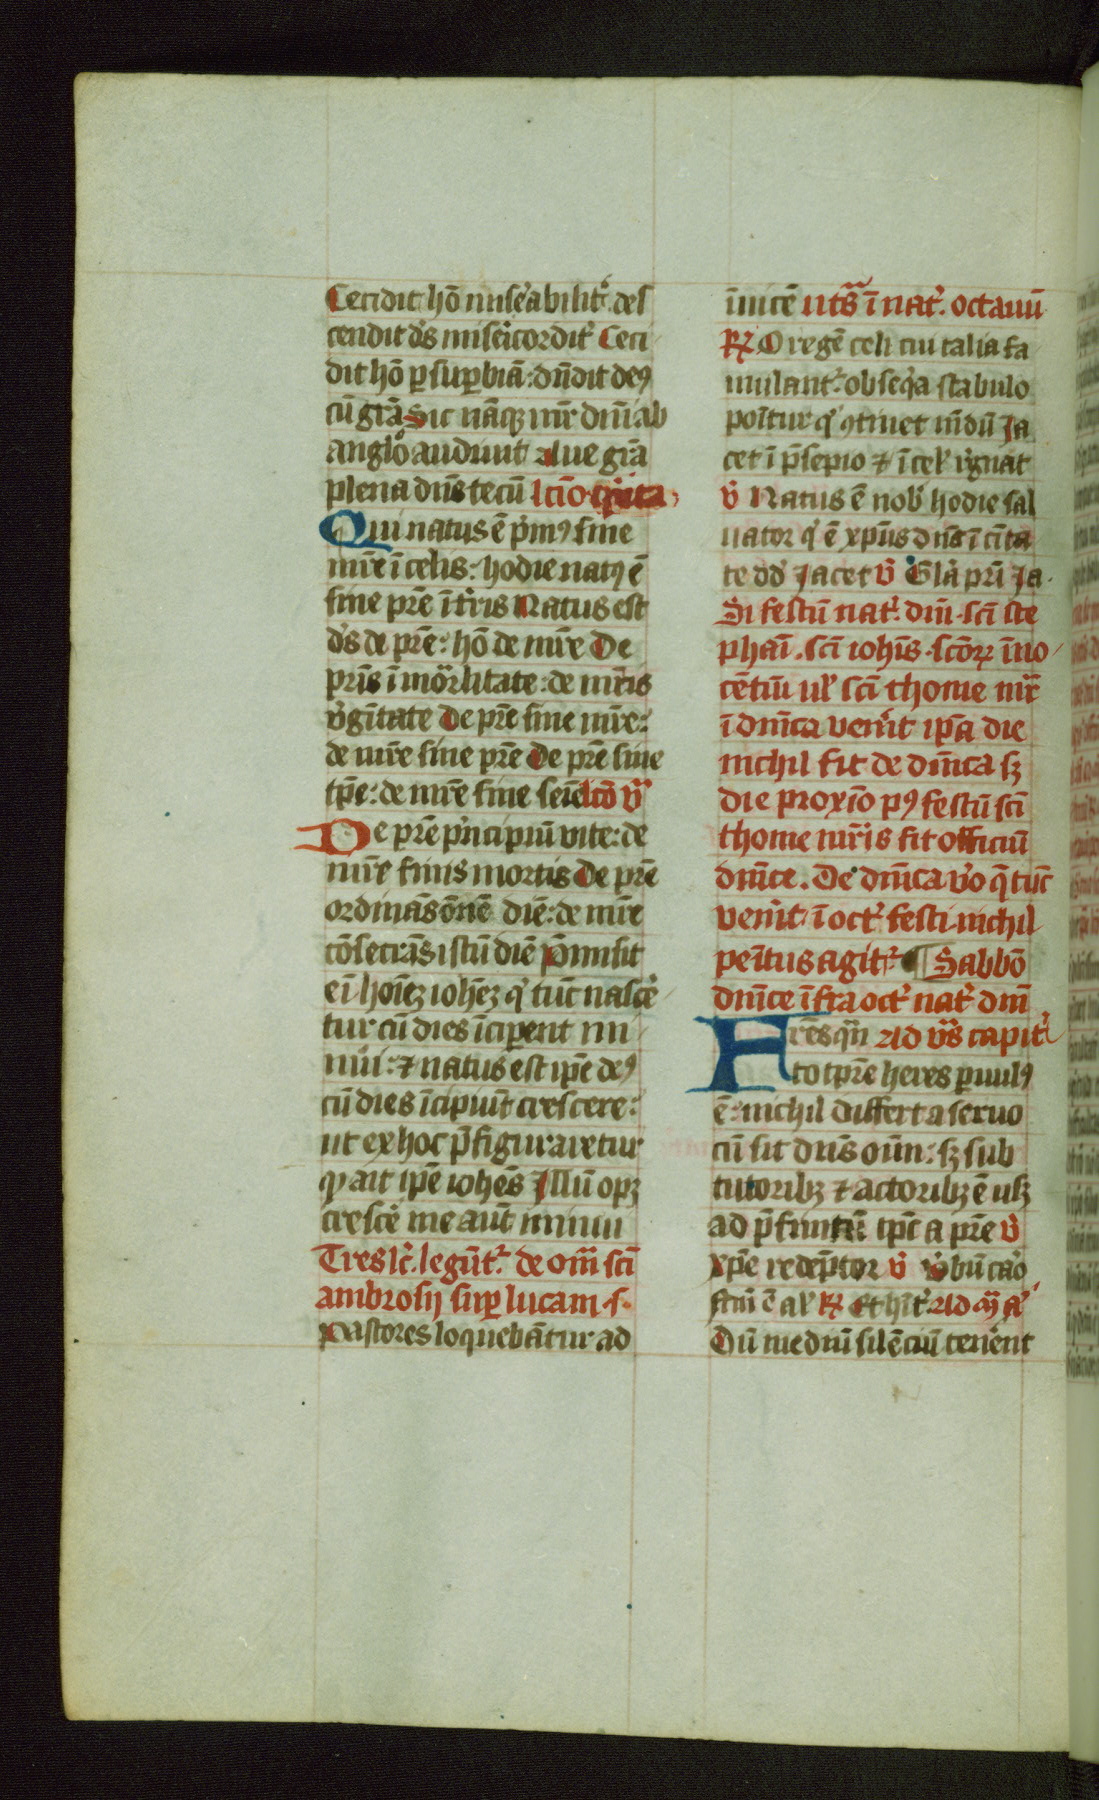 Cecidit hō mis̄eabilit̄ des
cendit d̄s mis̄icordit̄ Ceci
dit hō ꝑ suꝑbiā: d̄n̄dit deꝰ
cū gr̄a Sic nāqꝫ mr̄ dn̄i ab
angl̄o audiuit Aue gr̄a
plena dn̄s tecū lc̄io
Qui natus ē p̄mꝰ sine
mr̄e ī celis: hodie natꝰ ē
sine pr̄e ī t̄ris Natus est
d̄s de pr̄e: hō de mr̄e De
pr̄is īmōrlitate: de mr̄is
v̄gītate De pr̄e sine mr̄e:
de mr̄e sine pr̄e De pr̄e sine
tp̄e: de mr̄e sine seīe lcō vͣ
De pr̄e p̄ncipiū vite: de
mr̄e finis mortis De pr̄e
ordinās ōnē diē: de mr̄e
cōsecrās istū diē p̄misit
eī hoīeꝫ ioheꝫ qͥ tūc nasc̄e
tur cū dies īciꝑent mi
nui: ⁊ natus est ip̄e deꝰ
cū dies īcipiūt crescere:
ut ex hoc p̄figuraretur
qͥ ait ip̄e iohēs Illū opꝫ
cresc̄e me aūt minui
Tres lc̄. legūt̄ de om̄ sc̄i
ambrosij suꝑ lucam .s.
Pastores loquebātur ad
īuicē utš ī nat̄. octauū
℞ O regē celi cui talia fa
mulant̄: obseq̄a stabulo
poītur qͥ ꝯtinet mūdū Ja
cet ī p̄sepio ⁊ ī cel̄ r̄gnat
v̄ Natus ē nob̄ hodie sal
uator qͥ ē xp̄us dn̄s ī cīta
te dd̄ Jacet v̄ Gl̄a pr̄i Ja.
Si festū nat̄. dn̄i .sc̄i ste
phaī .sc̄i ioh̄is .sc̄oꝝ īno
cētiū ul̄ sc̄i thome mr̄
ī dn̄ica ven̄it ip̄a die
nichil fit de dn̄ica sꝫ
die proxīo pꝰ festū sc̄i
thome mr̄is fit officiū
dn̄ice. De dn̄ica v̄o q̄ tūc
ven̄it ī oct̄ festi nichil
penitus agit̄ ¶ Sabbō
dn̄ice īfra oct̄ nat̄ dn̄i
Fr̄es qͣn Ad vš capit̄
to tp̄re heres ꝑuulꝰ
ē: nichil differt a seruo
cū sit dn̄s oīm: sꝫ sub
tutoribꝫ ⁊ actoribꝫ ē usꝫ
ad p̄finitū tp̄c a pr̄e v̄
xp̄e redēptor v̄ v̄bū caro
ē al̄ ℞ Et hīt̄ Ad
Dū mediū silēciū tenēnt